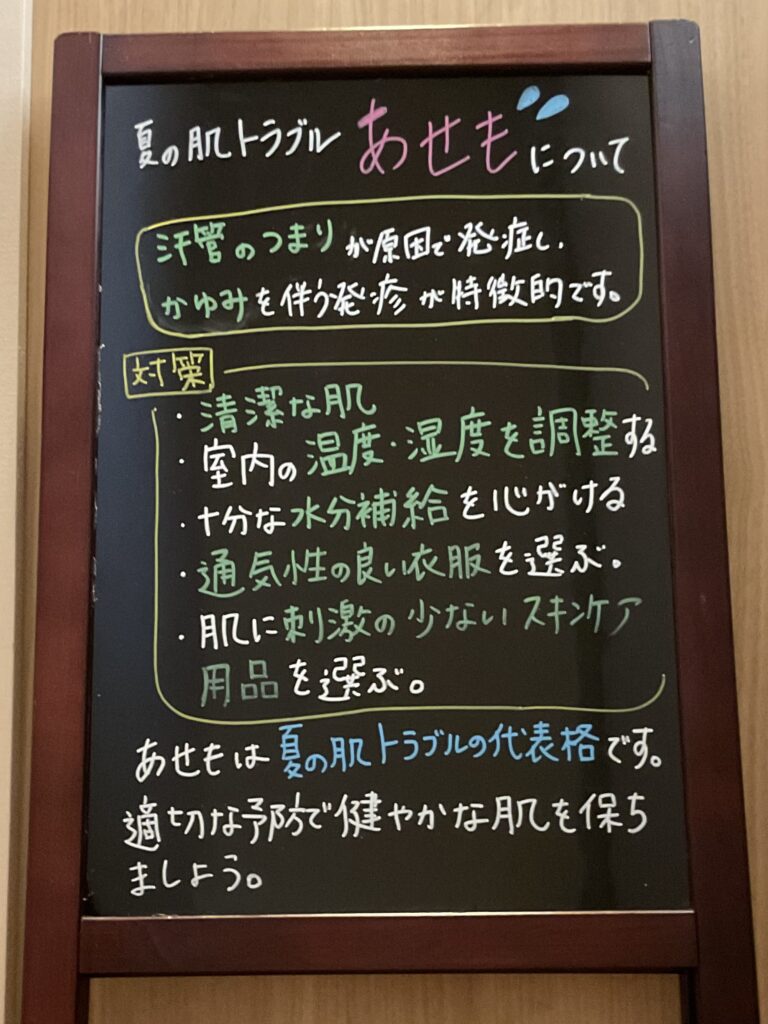 夏の肌トラブル あせもについて
汗管のつまりが原因で発症し、
かゆみを伴う発疹が特徴的です。
対策
・清潔な肌
・室内の温度・湿度を調整する
・十分な水分補給を心がける
・通気性の良い衣服を選ぶ。
・肌に刺激の少ないスキンケア
用品を選ぶ。
あせもは夏の肌トラブルの代表格です。
適切な予防で健やかな肌を保ち
ましょう。